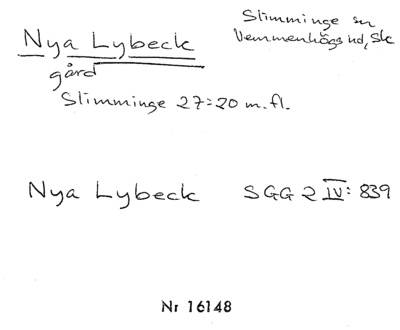 Nya Lybeck
Slimminge sn
Vemmenhögs hd, Sk
gård
Slimminge 27:20 m.fl.
Nya Lybeck SGG 2 IV: 839
Nr 16148